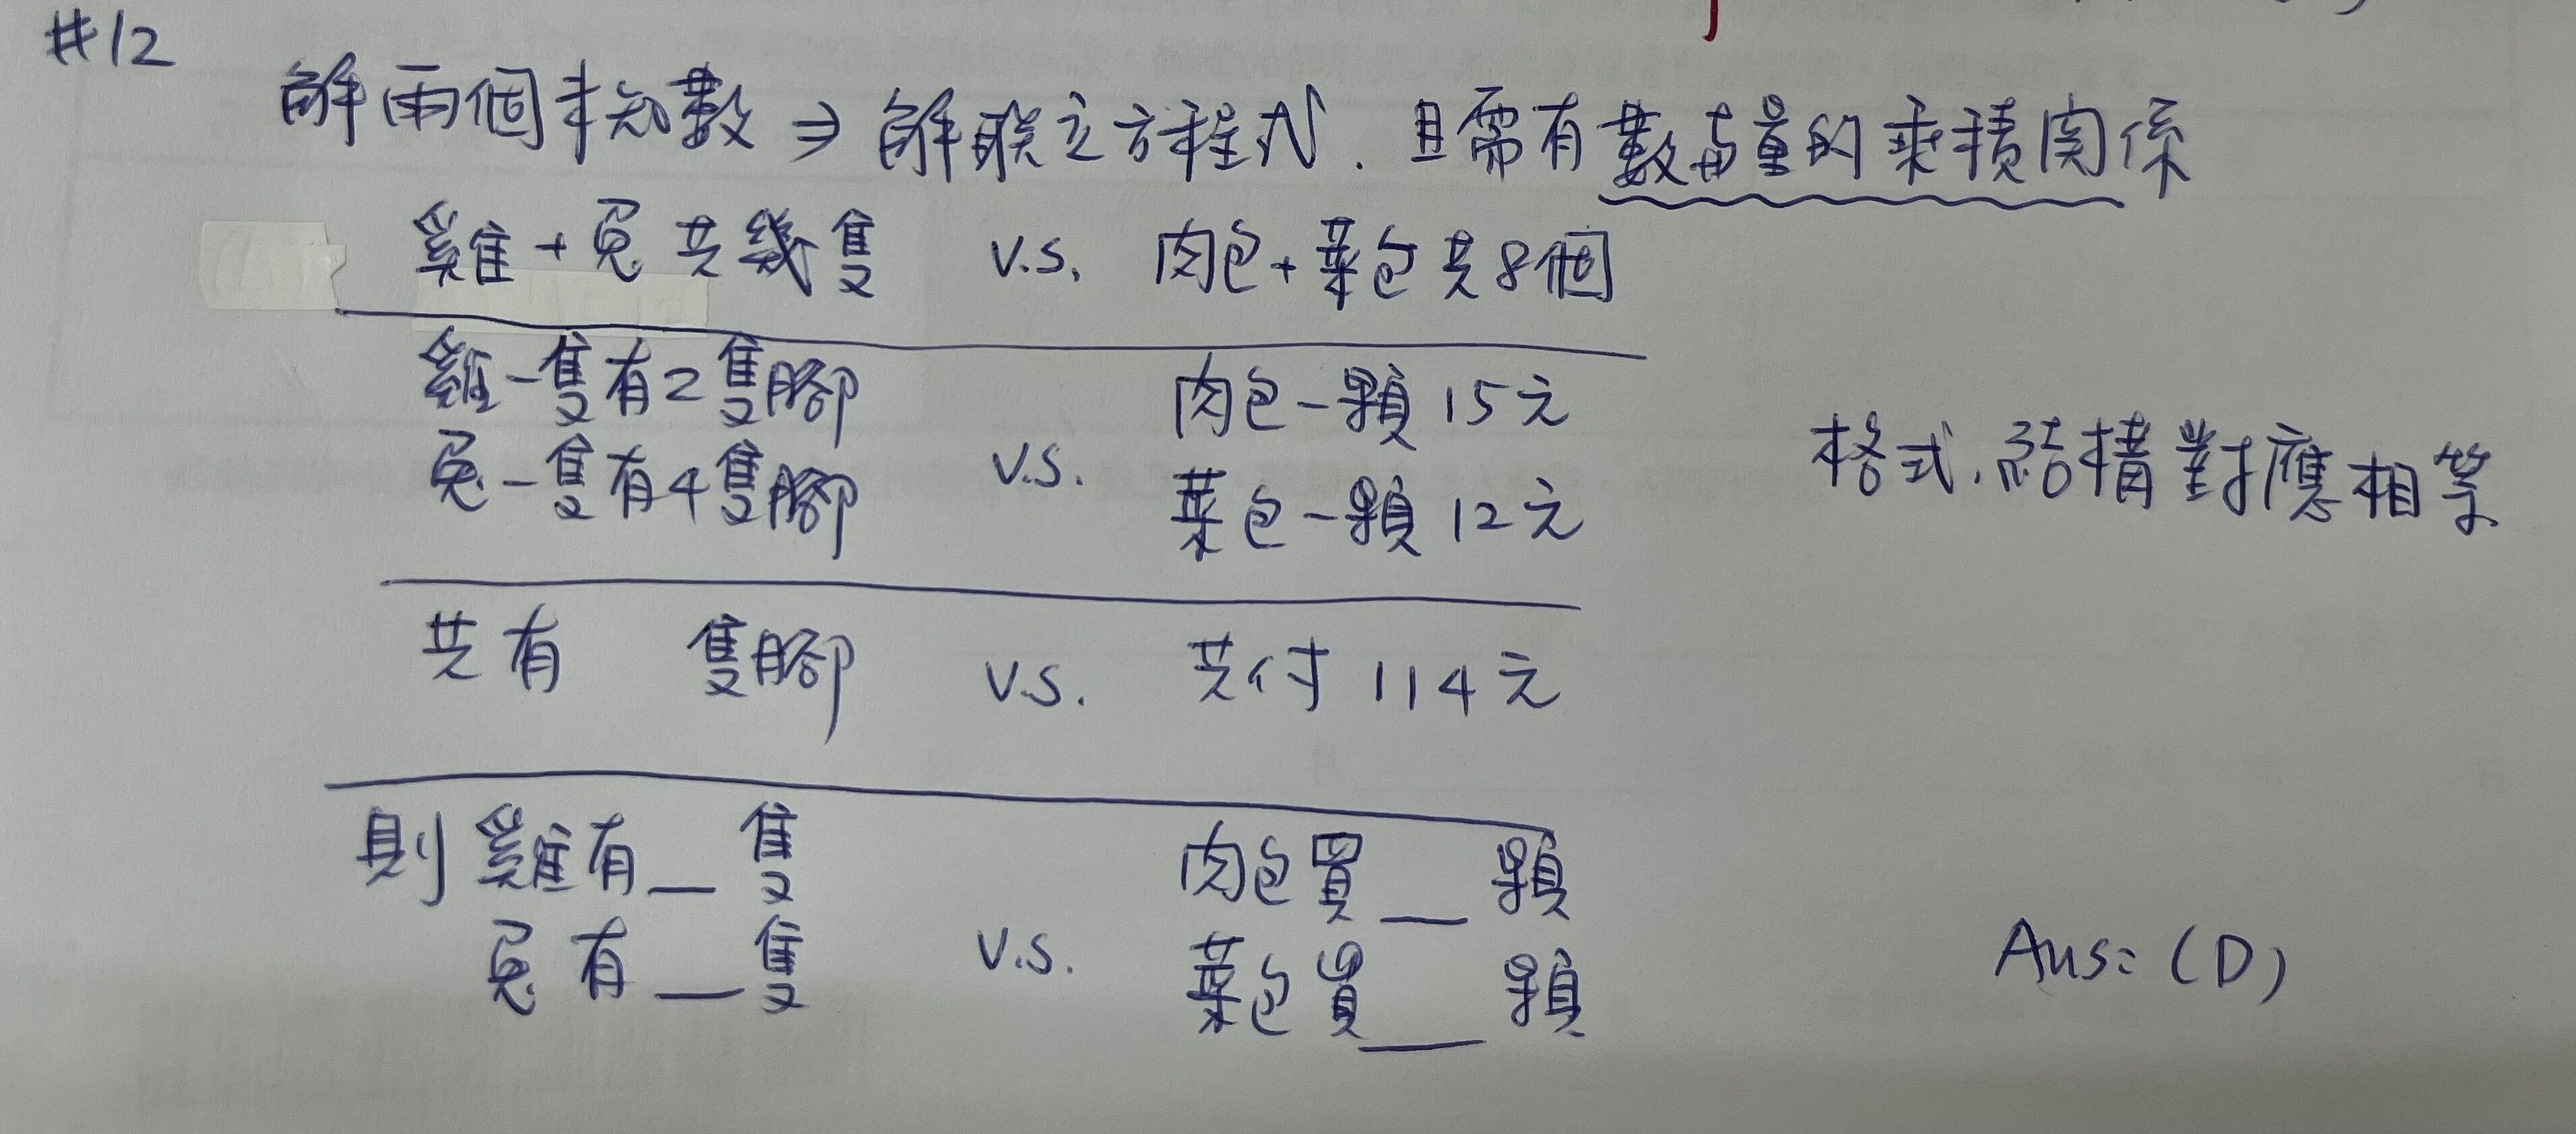 #12
解兩個未知數 ⇒ 解聯立方程式. 且需有數與量的乘積関係
雞+兔共幾隻 v.s. 肉包+菜包共8個
雞一隻有2隻腳 肉包一顆15元
v.s. 格式.結構對應相等
兔一隻有4隻腳 菜包一顆12元
共有 隻腳 v.s. 共付114元
則雞有__隻 肉包買__顆
兔有__隻 v.s. 菜包買__顆 Ans:(D)